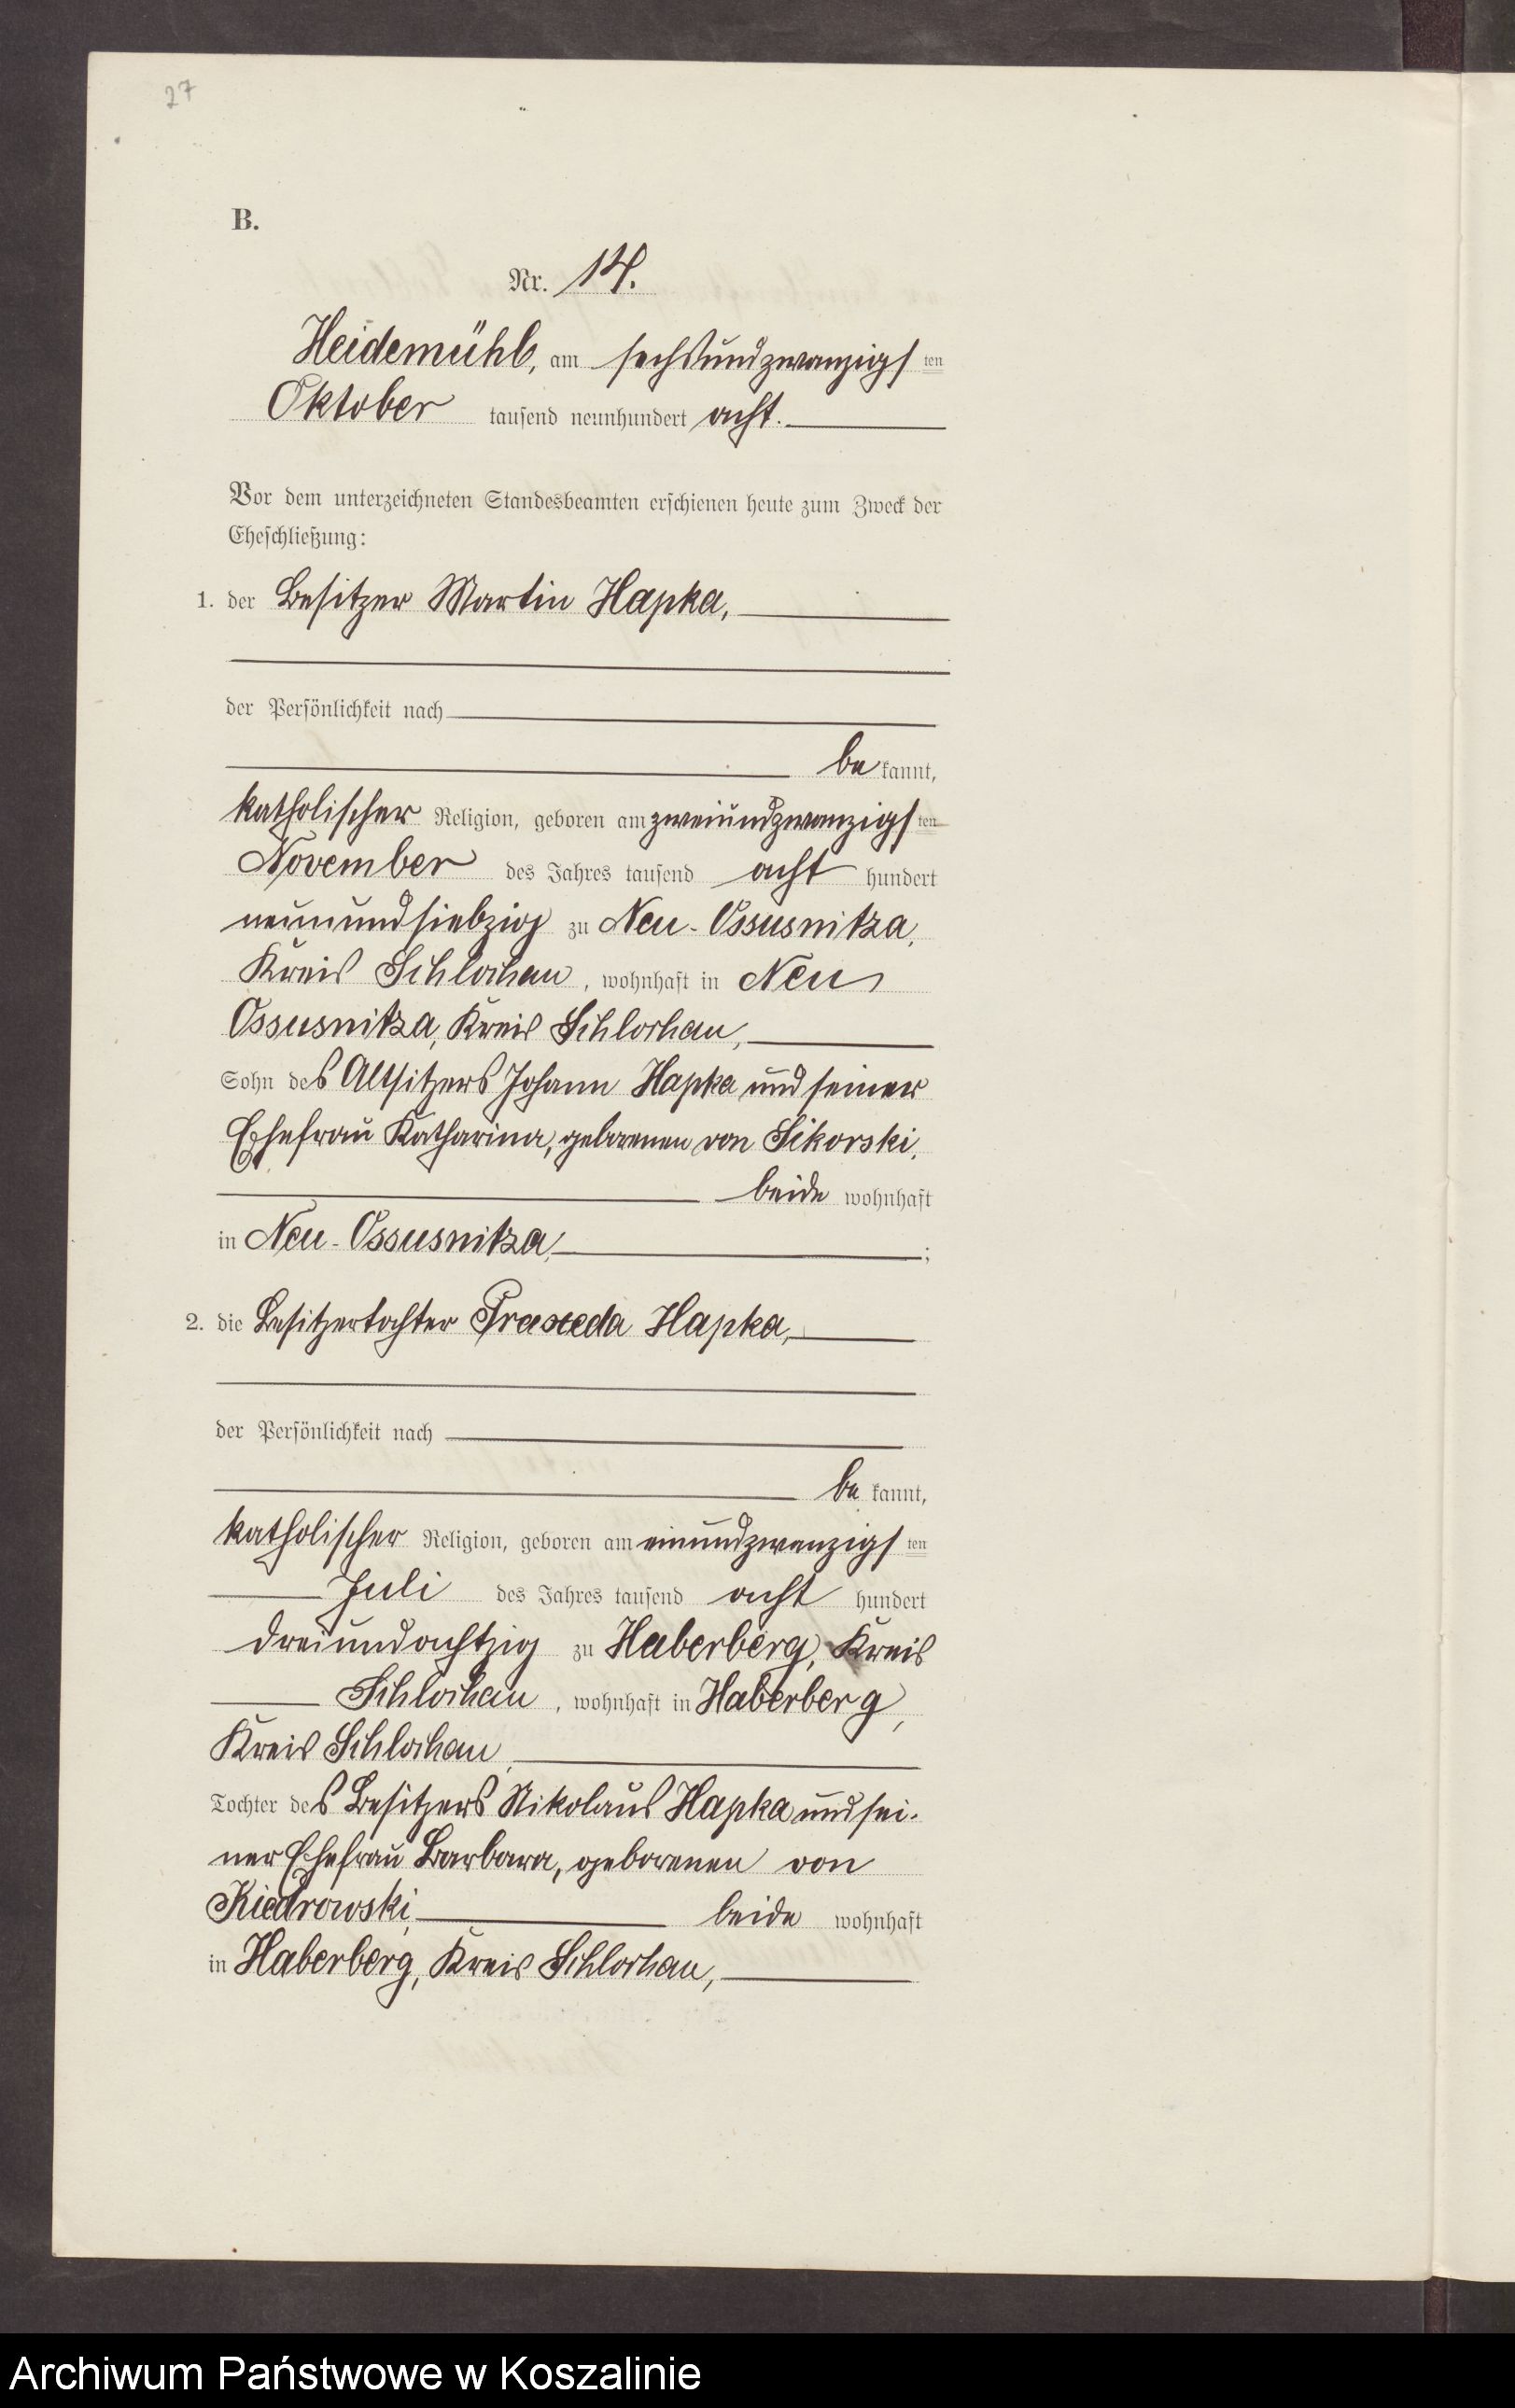 27
B.
Nr. 14.
Heidemühl, am sechsundzwanzigsten
Oktober tausend neunhundert acht.
Vor dem unterzeichneten Standesbeamten erschienen heute zum Zweck der
Eheschließung:
1. der Besitzer Martin Hapka,
der Persönlichkeit nach
be kannt,
katholischer Religion, geboren am zweiundzwanzigsten
November des Jahres tausend acht hundert
neunundsiebzig zu Neu-Ossusnitza,
Kreis Schlochau, wohnhaft in Neu
Ossusnitza, Kreis Schlochau,
Sohn des Altsitzers Johann Hapka und seiner
Ehefrau Katharina, geborenen von Sikorski,
beide wohnhaft
in Neu-Ossusnitza, ;
2. die Besitzertochter Praxeda Hapka,
der Persönlichkeit nach
be kannt,
katholischer Religion, geboren am einundzwanzigsten
Juli des Jahres tausend acht hundert
dreiundachtzig zu Haberberg, Kreis
Schlochau, wohnhaft in Haberberg,
Kreis Schlochau,
Tochter des Besitzers Nikolaus Hapka und sei-
ner Ehefrau Barbara, geborenen von
Kiedrowski, beide wohnhaft
in Haberberg, Kreis Schlochau,
Archiwum Państwowe w Koszalinie